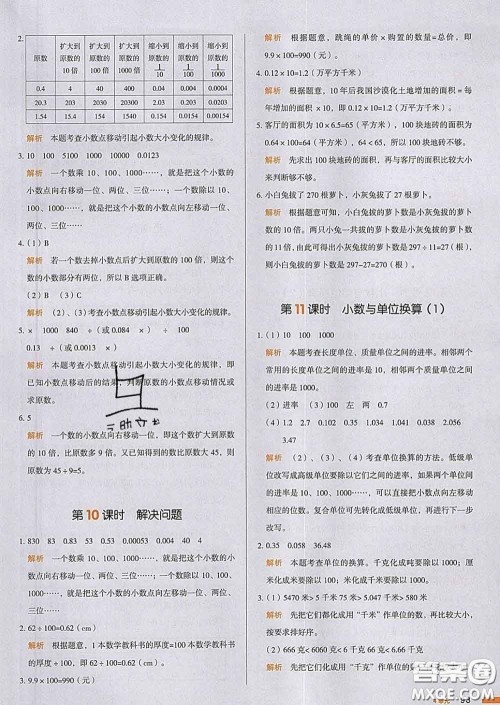 2.
原数 扩大到原数的10倍 扩大到原数的100倍 扩大到原数的1000倍 缩小到原数的1/10 缩小到原数的1/100 缩小到原数的1/1000
0.4 4 40 400 0.04 0.004 0.0004
20.3 203 2030 20300 2.03 0.203 0.0203
1.54 15.4 154 1540 0.154 0.0154 0.00154
解析 本题考查小数点移动引起小数大小变化的规律。
3. 10 100 1000 10000 0.0123
解析 一个数乘 10、100、1000……，就是把这个数的
小数点向右移动一位、两位、三位……一个数除以 10、
100、1000……，就是把这个数的小数点向左移动一位、
两位、三位……
4. (1) B
解析 若一个数去掉小数点后扩大到原数的 100 倍，那
么这个小数有两位小数，所以 B 选项正确。
(2) B (3) C
解析 (2)、(3)考查小数点移动引起小数大小变化的规律。
5. × 1000 840 ÷ (或 0.084 ×) ÷ 1000
0.13 ÷ (或 0.0013 ×)
解析 本题考查小数点移动引起小数大小变化的规律，即
已知小数点移动后的结果，判断原数的小数点移动情况或
求原数。
6. 5
解析 一个数的小数点向右移动一位，即这个数扩大到原
数的 10 倍，比原数多 9 倍。又已知得到的数比原数大 45，则
原数为 45÷9=5。
第 10 课时 解决问题
1. 830 83 0.83 53 0.00053 0.004 40 4
解析 一个数乘 10、100、1000……，就是把这个数的
小数点向右移动一位、两位、三位……一个数除以 10、
100、1000……，就是把这个数的小数点向左移动一位、
两位、三位……
2. 62÷100=0.62（cm）
解析 根据题意，1 本数学教科书的厚度=100 本数学教科书
的厚度÷100，即 62÷100=0.62（cm）。
3. 9.9×100=990（元）
解析 根据题意，跳绳的单价×购置的数量=总价，即
9.9×100=990（元）。
4. 0.12×10=1.2（万平方千米）
解析 根据题意，10 年后我国沙漠化土地增加的面积 =
每年增加的面积 × 10，即 0.12×10=1.2（万平方千米）。
5. 客厅的面积为 10×6.5=65（平方米），100 块地砖的面积为
0.64×100=64（平方米），64<65，所以 100 块地砖不够。
解析 先求出 100 块地砖的面积，再与客厅的面积比较大小
来判断够不够。
6. 小白兔拔了 270 根萝卜，小灰兔拔了 27 根萝卜。
解析 根据题意可知，小白兔拔的萝卜数是小灰兔拔的萝卜
数的 10 倍。两只小兔一共拔的萝卜数是小灰兔拔的萝卜数
的 11 倍，由此可得出小灰兔拔的萝卜数是 297÷11=27（根），
小白兔拔的萝卜数是 297-27=270（根）。
第 11 课时 小数与单位换算（1）
1. (1) 10 100 1000 1000
解析 本题考查长度单位、质量单位之间的进率。相邻两个
常用的长度单位之间的进率是 10，相邻两个质量单位之间的
进率是 1000。
(2) 进率 (3) 100 左 两 0.7
(4) 0.31 2.79 0.129 0.06 1.02 4.038
3.47
解析 (2)、(3)、(4)考查单位换算的方法。低级单位
改写成高级单位要除以它们之间的进率，如果进率是 10、
100、1000……，可以直接把小数点向左移动相应的位数。
复合单位可先转化成低级单位，再进行改写。
2. 0.35 0.058 36.48
解析 本题考查单位的换算。千克化成吨要除以 1000，厘
米化成米要除以 100，米化成千米要除以 1000。
3. (1) 5470 米>5 千米 47 米>5 千米 7 米>580 米
解析 先把它们都化成用“千米”作单位的数，再比较大小，
按要求排好序。
(2) 6 千克 66 克<6 千克 600 克<6.66 千克
解析 先把它们都化成用“千克”作单位的数，再进行